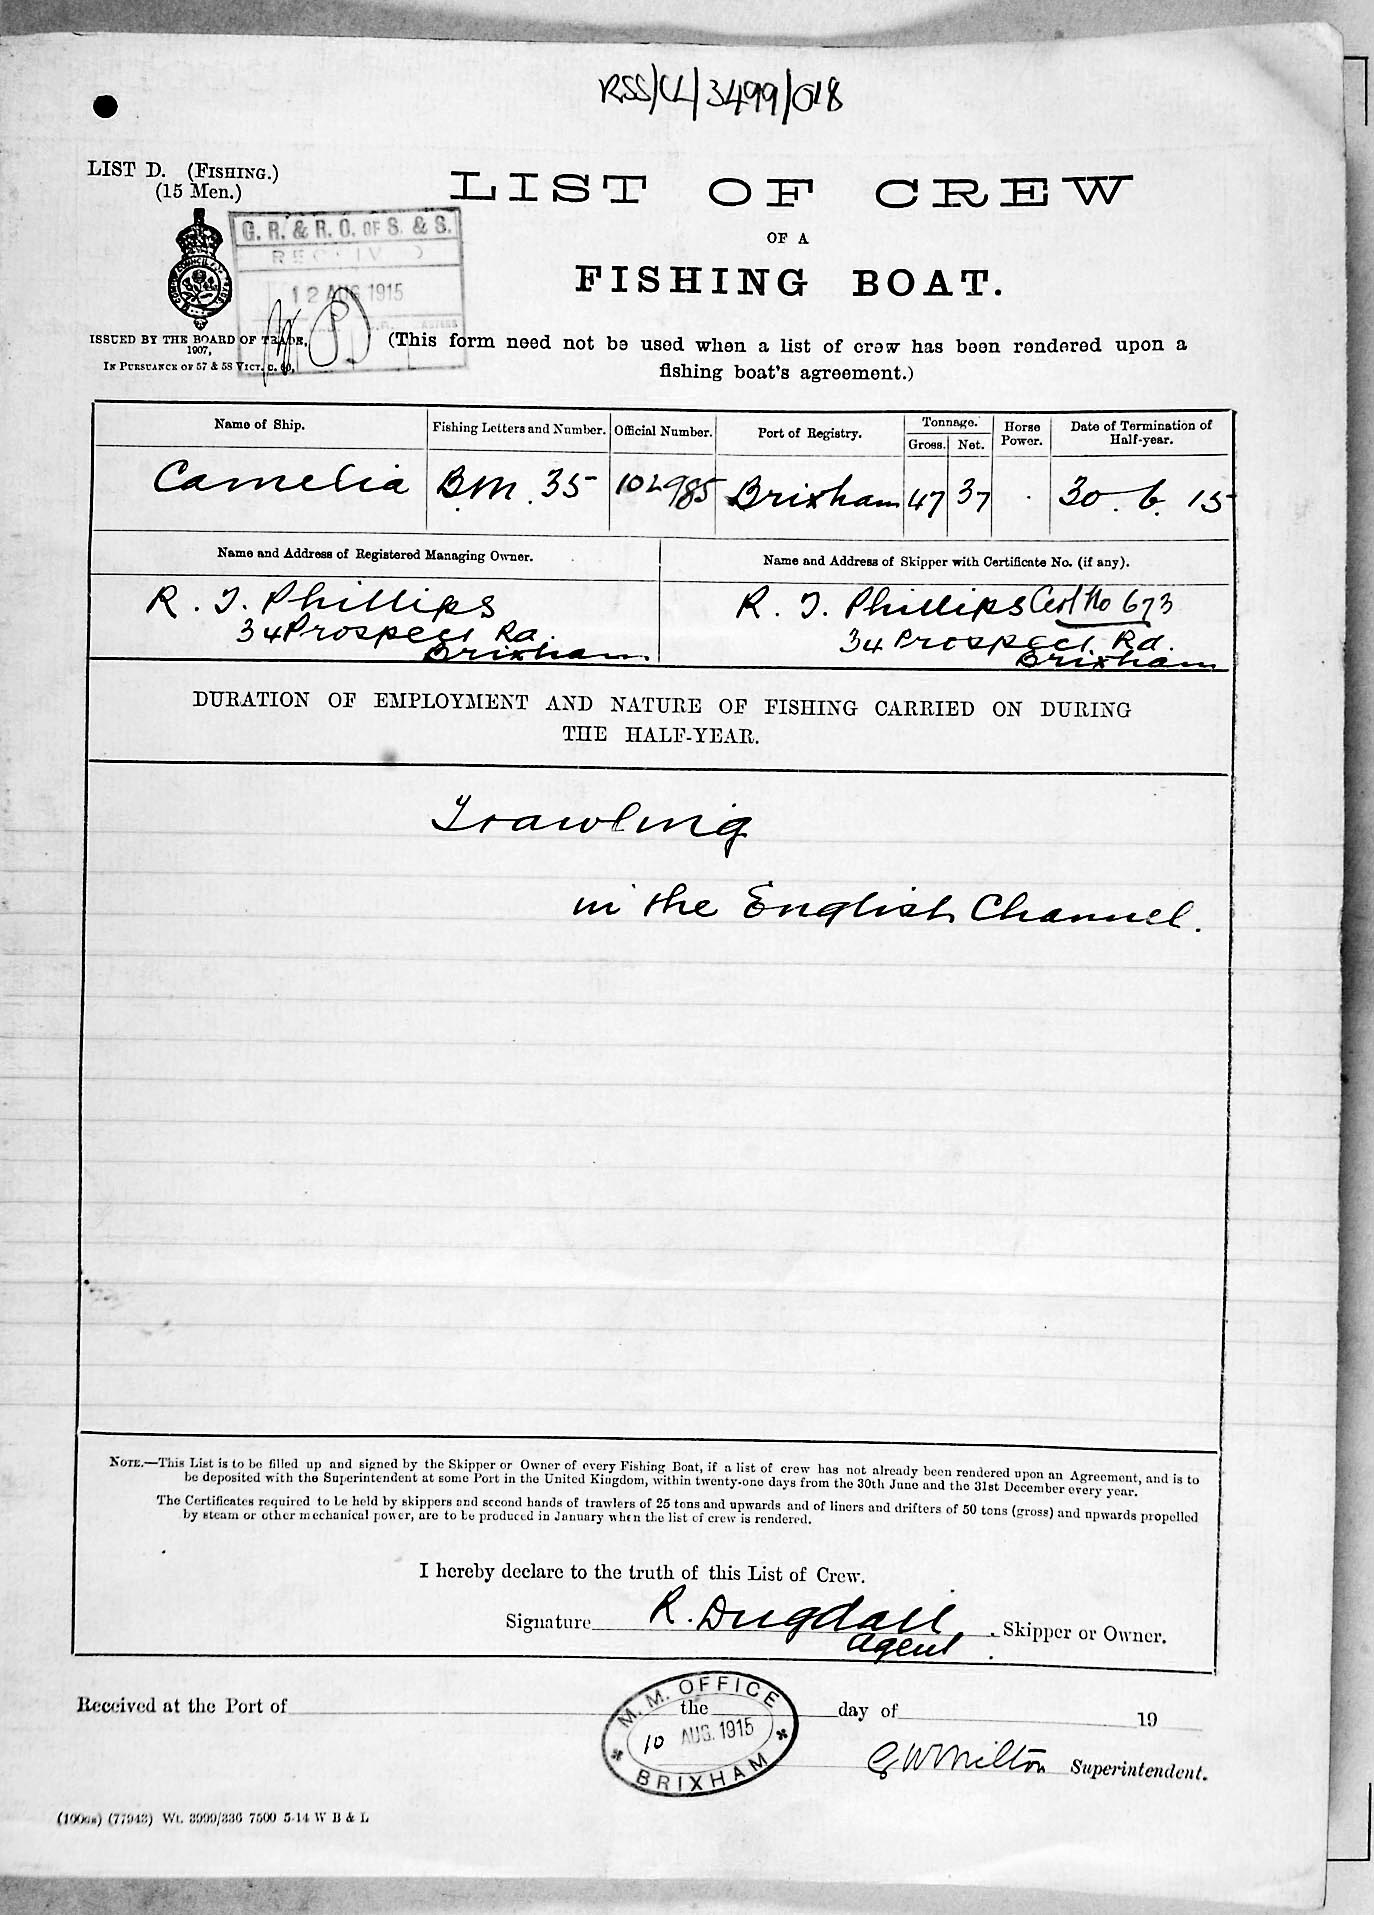 RSS/CL/3499/018
LIST D. (FISHING.)
(15 Men.)
LIST OF CREW
OF A
FISHING BOAT.
G. R. & R. O. OF S. & S.
RECEIVED
12 AUG 1915
ISSUED BY THE BOARD OF TRADE,
1907,
IN PURSUANCE OF 57 & 58 VICT. C. 60.
(This form need not be used when a list of crew has been rendered upon a
fishing boat's agreement.)
Name of Ship. Fishing Letters and Number. Official Number. Port of Registry. Tonnage. Gross. Net. Horse Power. Date of Termination of Half-year.
Camelia B.M. 35 102985 Brixham 47 37 30. 6. 15
Name and Address of Registered Managing Owner. Name and Address of Skipper with Certificate No. (if any).
R. J. Phillips R. J. Phillips Cert No 673
34 Prospect Rd. 34 Prospect Rd.
Brixham Brixham
DURATION OF EMPLOYMENT AND NATURE OF FISHING CARRIED ON DURING
THE HALF-YEAR.
Trawling
in the English Channel.
NOTE.—This List is to be filled up and signed by the Skipper or Owner of every Fishing Boat, if a list of crew has not already been rendered upon an Agreement, and is to
be deposited with the Superintendent at some Port in the United Kingdom, within twenty-one days from the 30th June and the 31st December every year.
The Certificates required to be held by skippers and second hands of trawlers of 25 tons and upwards and of liners and drifters of 50 tons (gross) and upwards propelled
by steam or other mechanical power, are to be produced in January when the list of crew is rendered.
I hereby declare to the truth of this List of Crew.
Signature R. Dugdall Skipper or Owner.
agent
Received at the Port of the day of 19
M. M. OFFICE
10 AUG. 1915
BRIXHAM
G W Milton Superintendent.
(77943) Wt. 3999/336 7500 5-14 W B & L